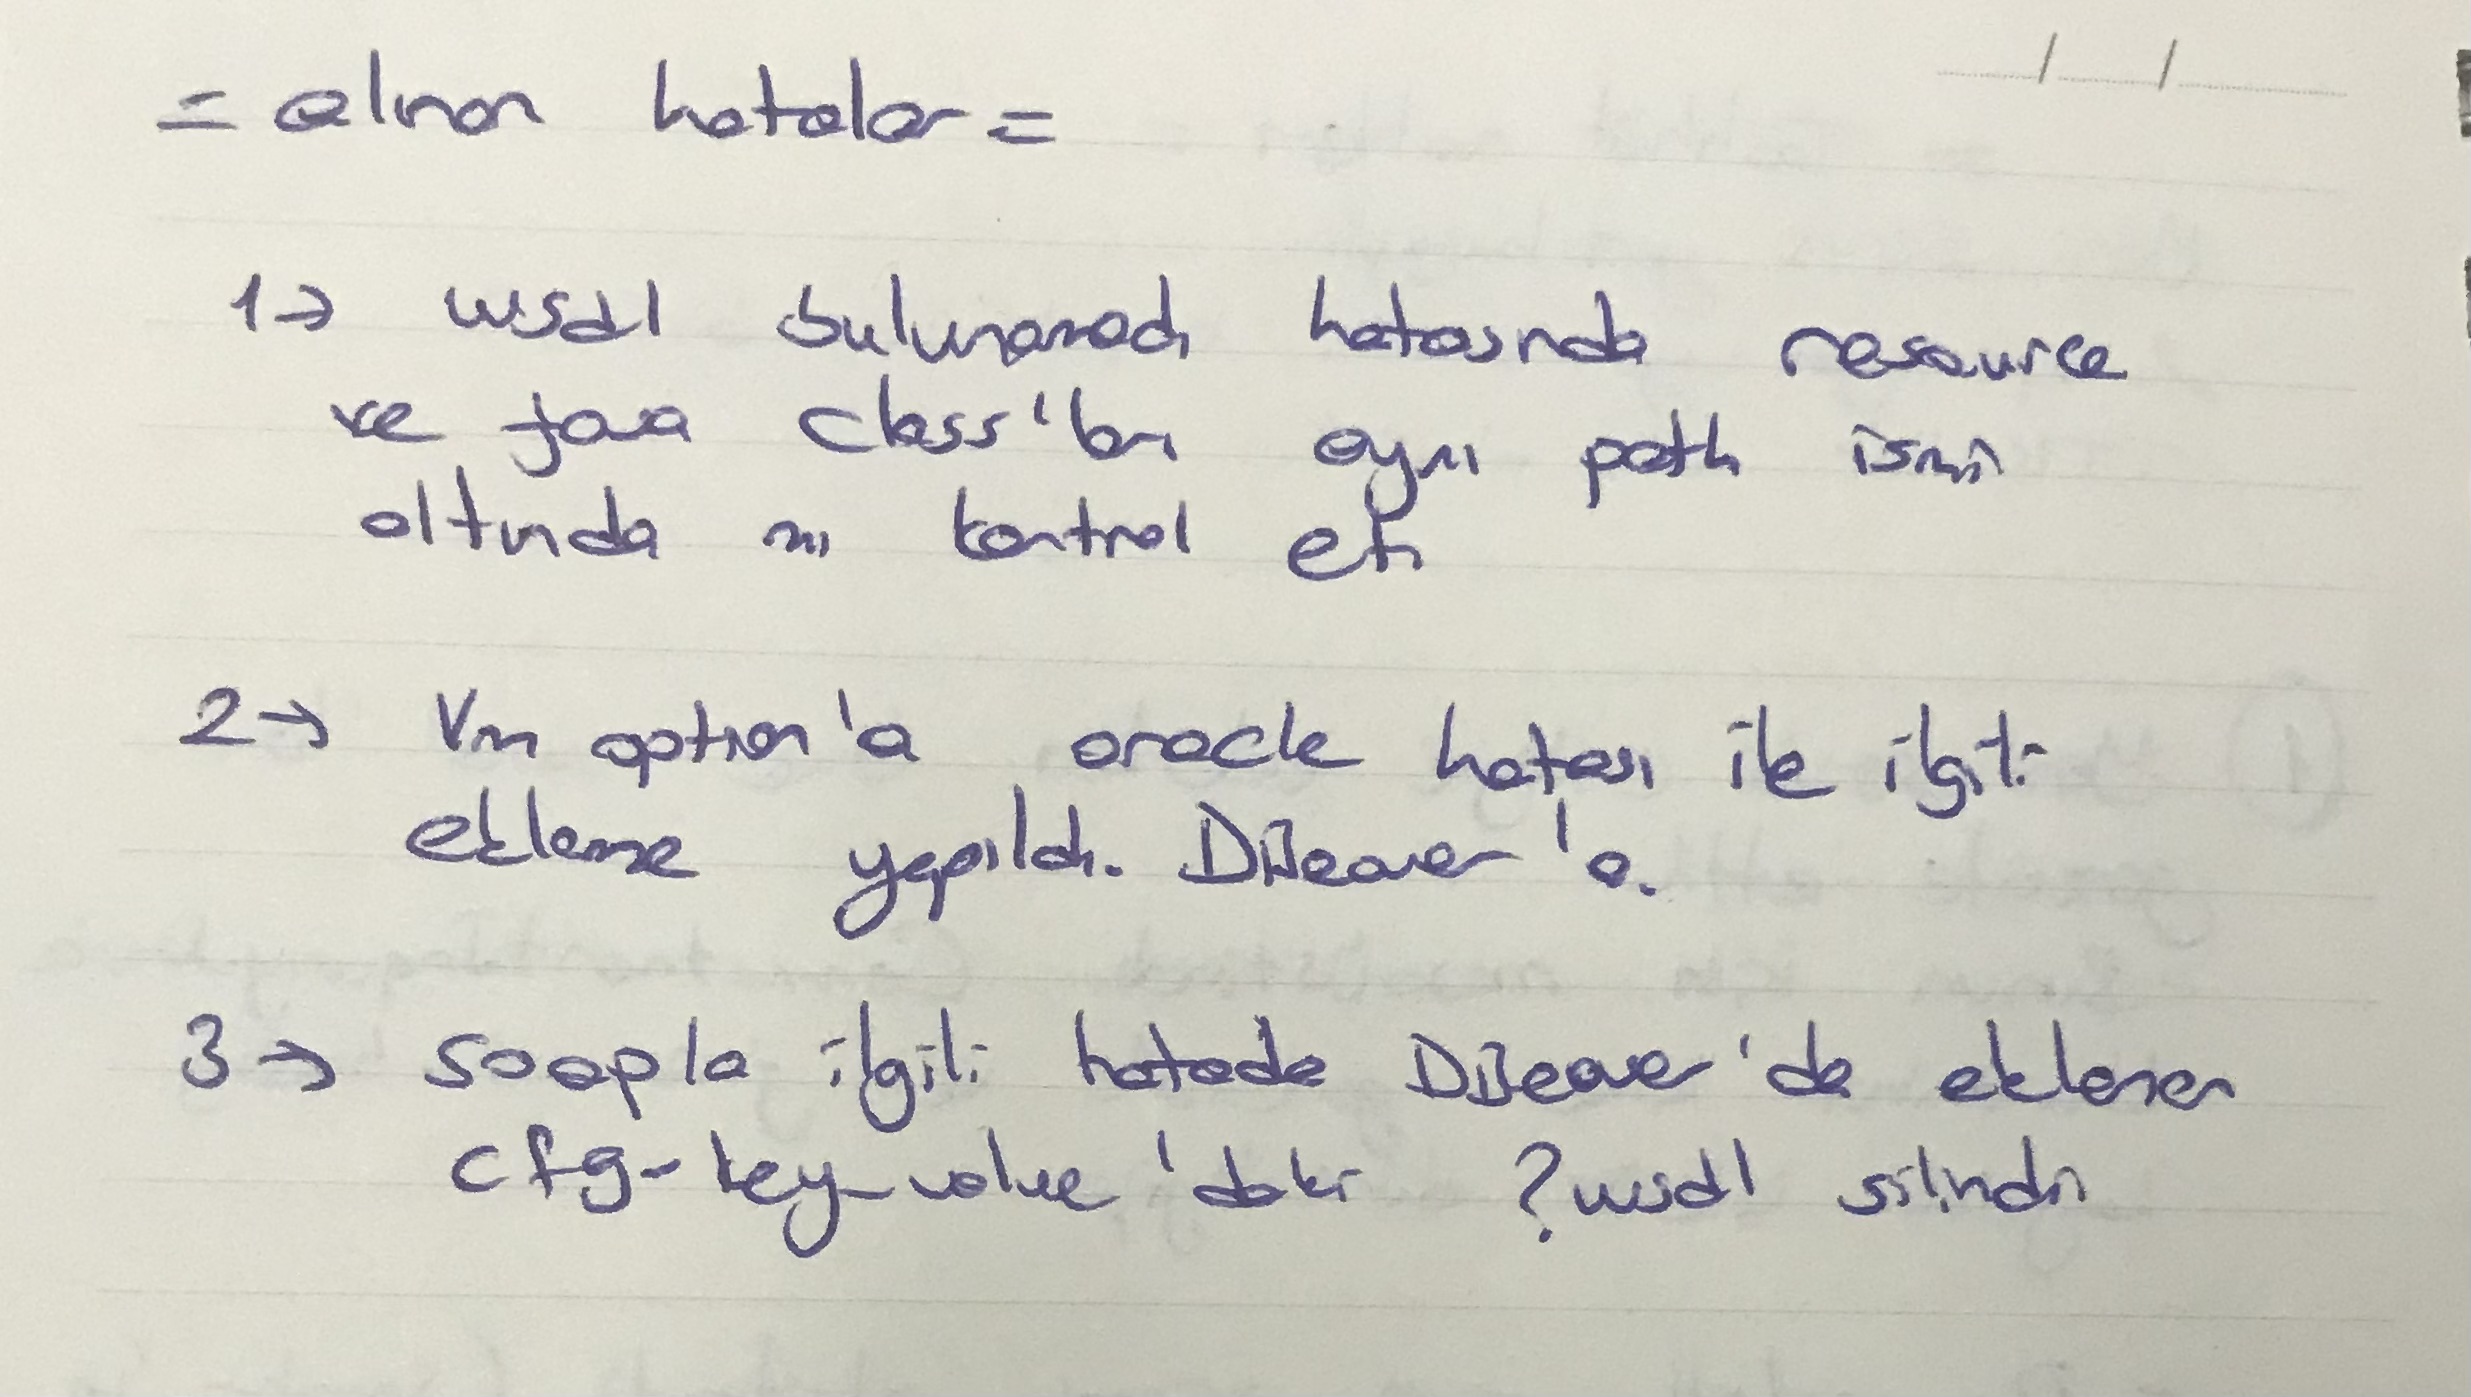 = alınan hatalar =
1→ wsdl bulunamadı hatasında resource
ve java class'ları aynı path ismi
altında mı kontrol et
2→ Vm option'a oracle hatası ile ilgili
ekleme yapıldı. DBeaver'a.
3→ soapla ilgili hatada DBeaver'da eklenen
cfg-key-value'daki ?wsdl silindi